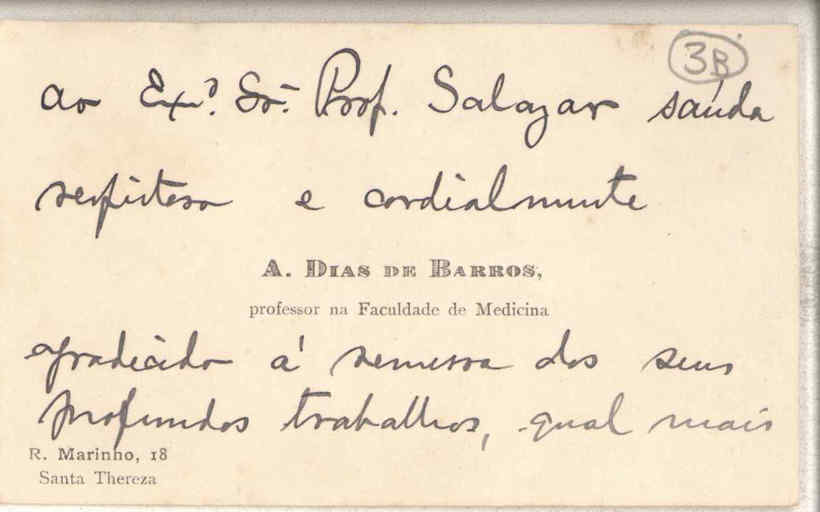 3B
ao Exmº. Sr. Prof. Salazar saúda
respeitoso e cordialmente
A. DIAS DE BARROS,
professor na Faculdade de Medicina
agradecido á remessa dos seus
profundos trabalhos, qual mais
R. Marinho, 18
Santa Thereza